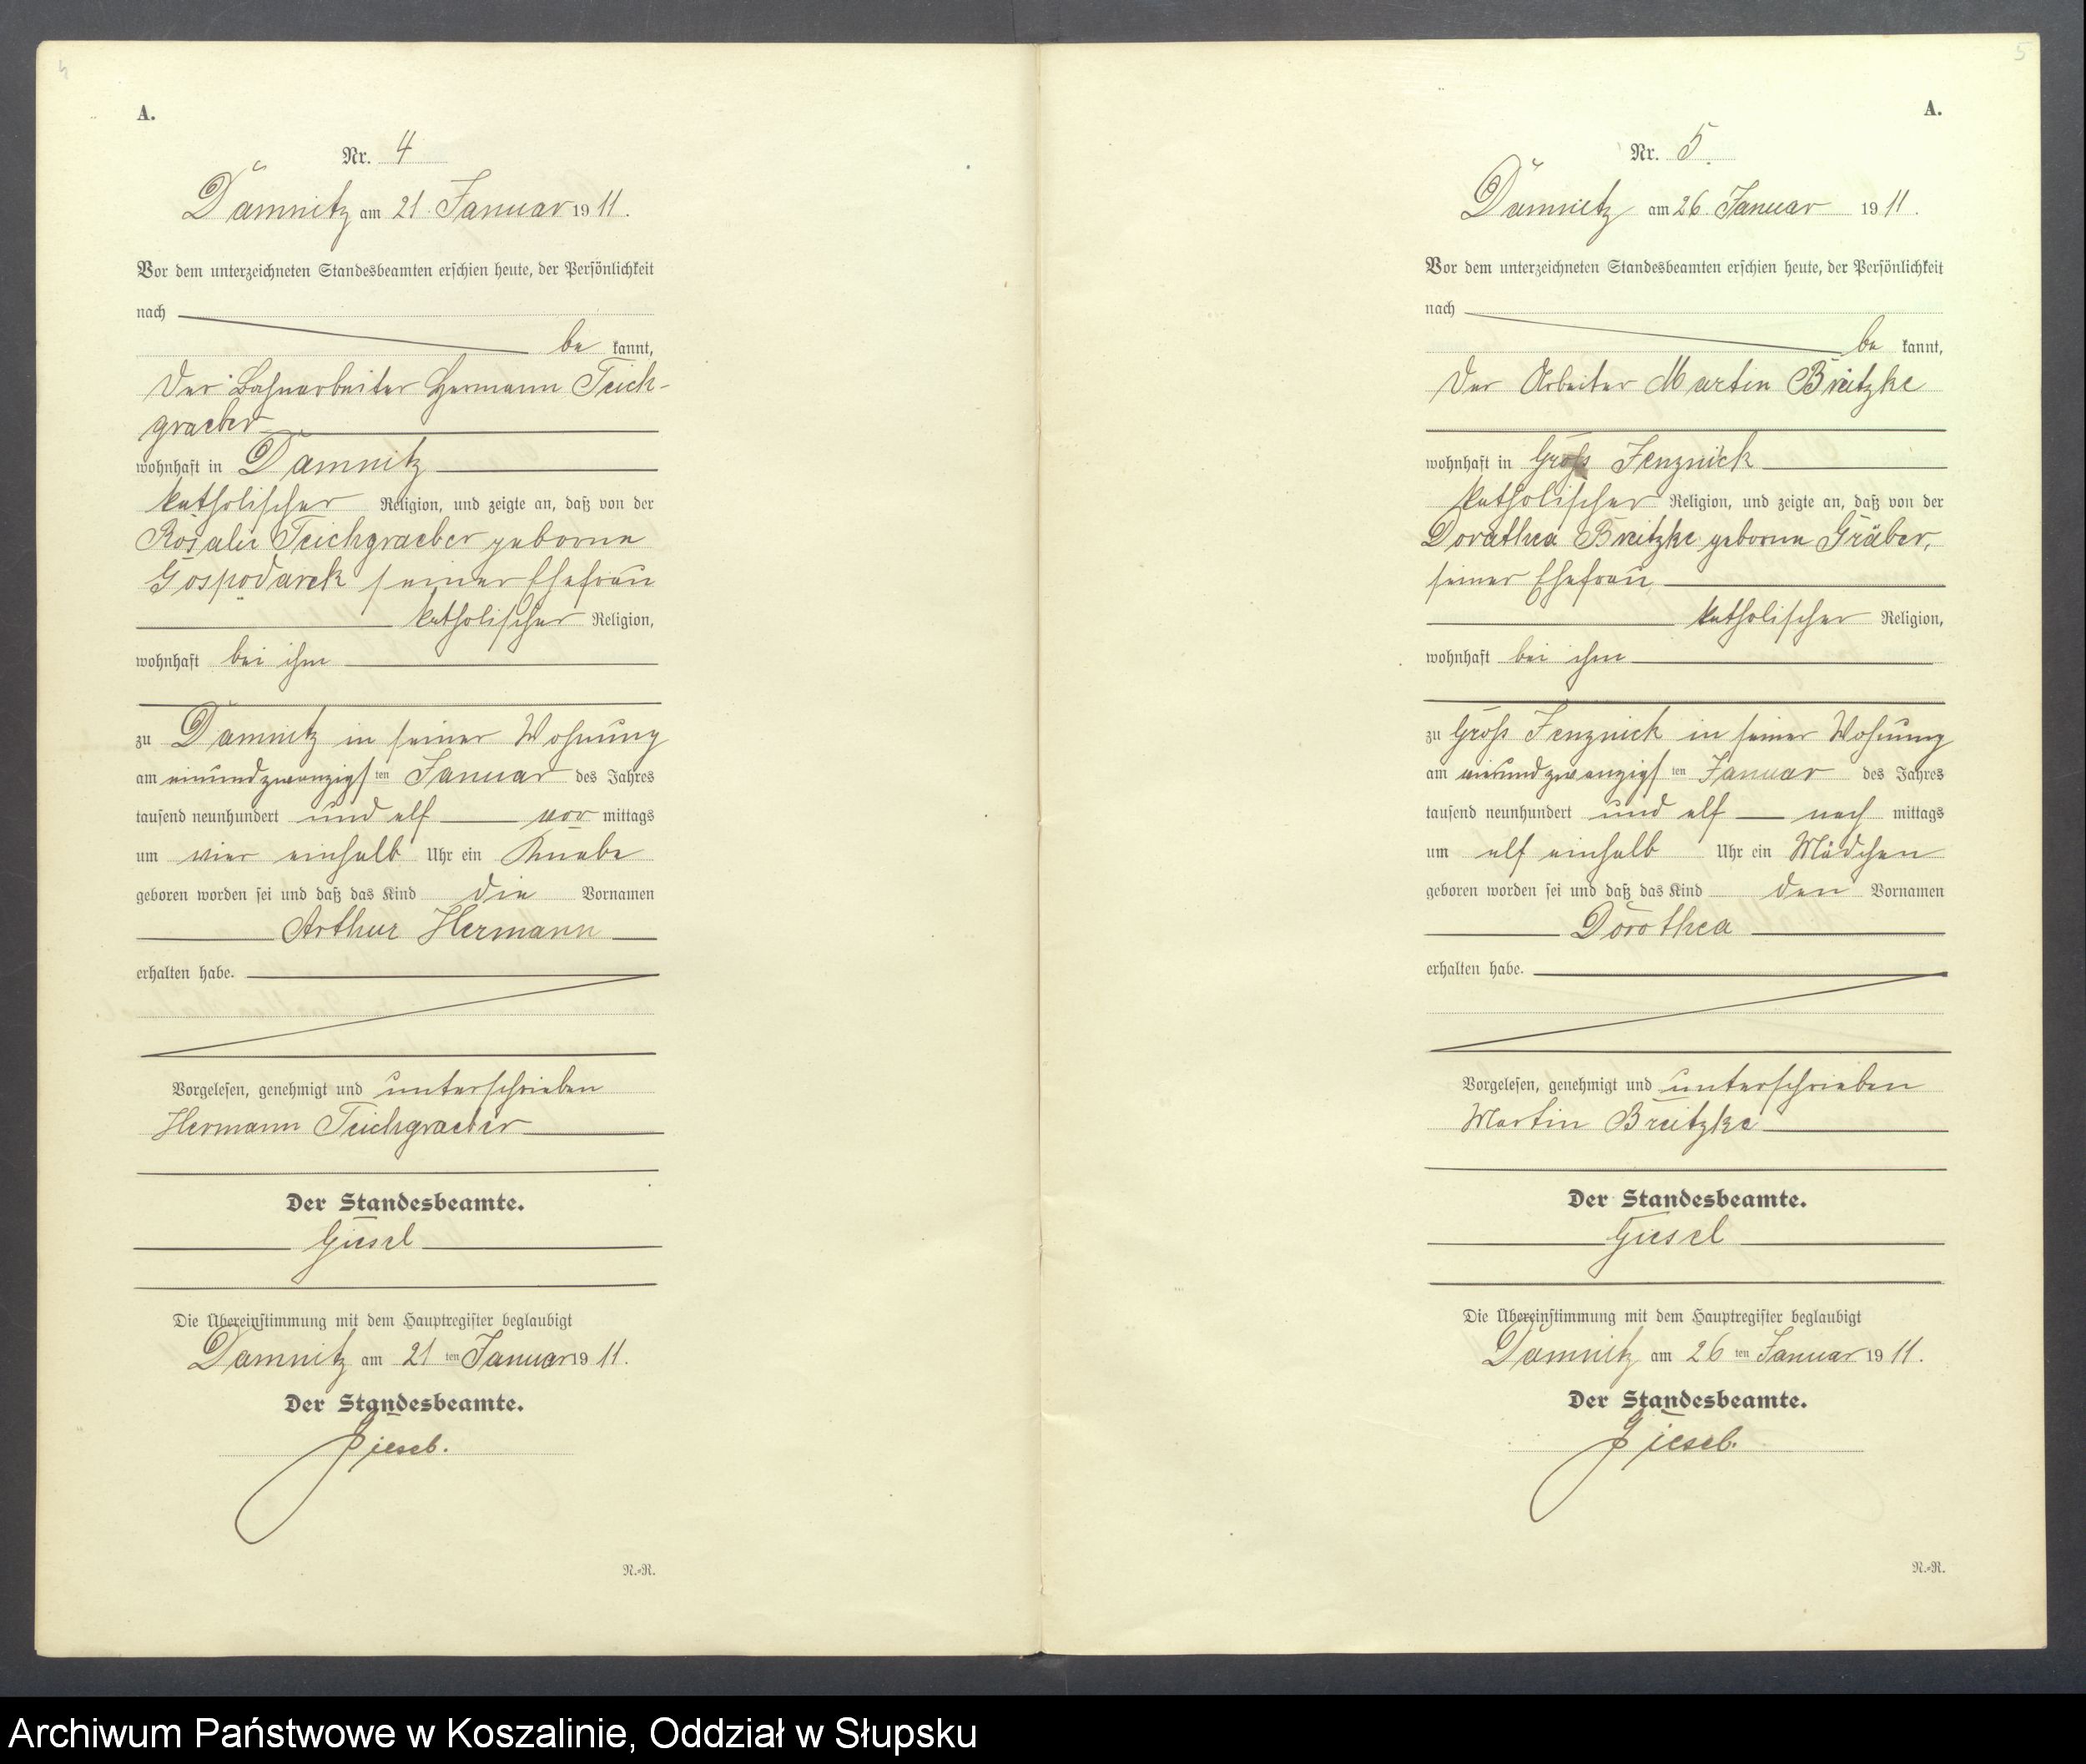 4
A.
Nr. 4
Damnitz am 21. Januar 1911.
Vor dem unterzeichneten Standesbeamten erschien heute, der Persönlichkeit
nach
be kannt,
der Bahnarbeiter Hermann Teich-
graeber
wohnhaft in Damnitz
katholischer Religion, und zeigte an, daß von der
Rosalie Teichgraeber geborne
Gospodarek seiner Ehefrau
katholischer Religion,
wohnhaft bei ihm
zu Damnitz in seiner Wohnung
am einundzwanzigsten Januar des Jahres
tausend neunhundert und elf vor mittags
um vier einhalb Uhr ein Knabe
geboren worden sei und daß das Kind die Vornamen
Arthur Hermann
erhalten habe.
Vorgelesen, genehmigt und unterschrieben
Hermann Teichgraeber
Der Standesbeamte.
Giesel
Die Übereinstimmung mit dem Hauptregister beglaubigt
Damnitz am 21 ten Januar 1911.
Der Standesbeamte.
Giesel.
N.-R.
5
A.
Nr. 5.
Damnitz am 26. Januar 1911.
Vor dem unterzeichneten Standesbeamten erschien heute, der Persönlichkeit
nach
be kannt,
der Arbeiter Martin Breitzke
wohnhaft in Groß Jenznick
katholischer Religion, und zeigte an, daß von der
Dorathea Breitzke geborne Gräber,
seiner Ehefrau,
katholischer Religion,
wohnhaft bei ihm
zu Groß Jenznick in seiner Wohnung
am ten Januar des Jahres
tausend neunhundert und elf nach mittags
um elf einhalb Uhr ein Mädchen
geboren worden sei und daß das Kind den Vornamen
Dorothea
erhalten habe.
Vorgelesen, genehmigt und unterschrieben
Martin Breitzke
Der Standesbeamte.
Giesel
Die Übereinstimmung mit dem Hauptregister beglaubigt
Damnitz am 26 ten Januar 1911.
Der Standesbeamte.
Giesel.
N.-R.
Archiwum Państwowe w Koszalinie, Oddział w Słupsku